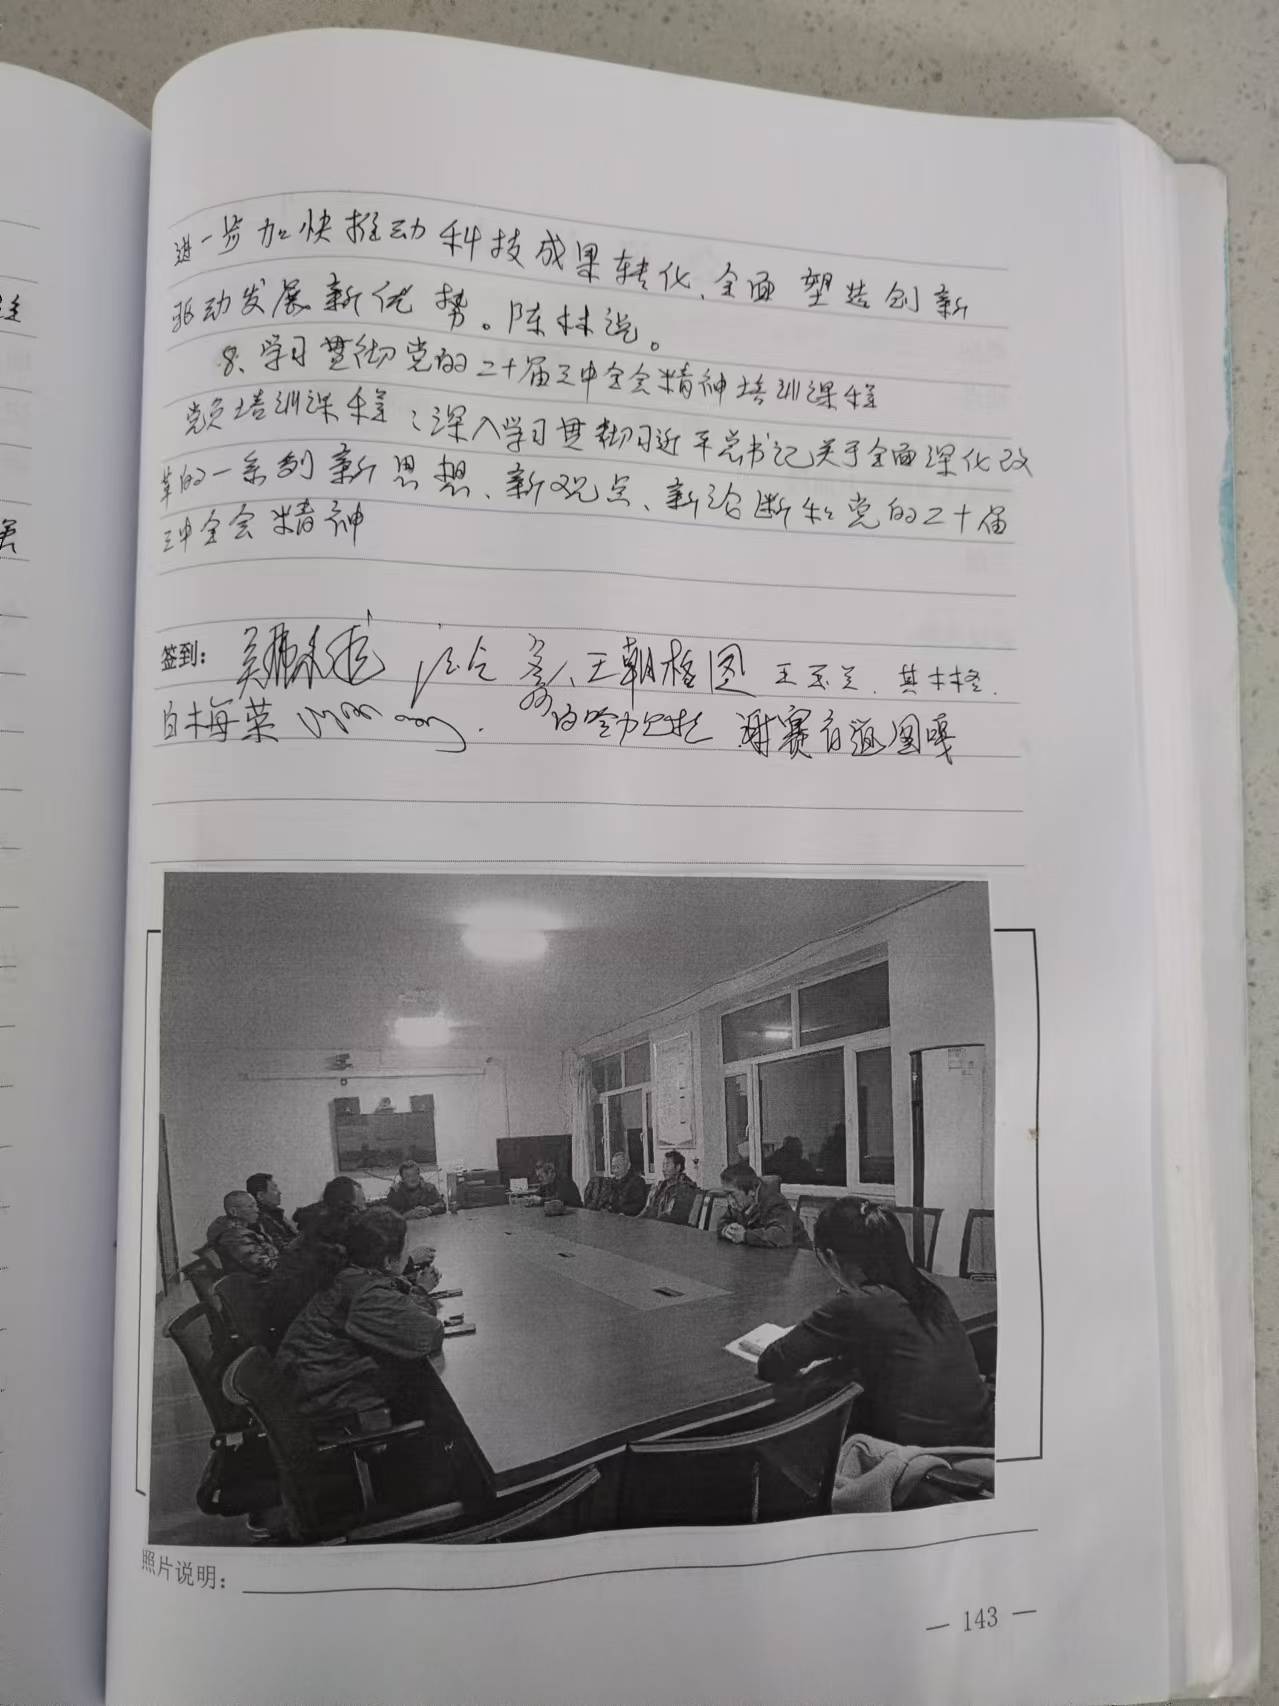 进一步加快推动科技成果转化、全面塑造创新
驱动发展新优势。陈林说。
8、学习贯彻党的二十届三中全会精神培训课程
党员培训课程：深入学习贯彻习近平总书记关于全面深化改
革的一系列新思想、新观点、新论断和党的二十届
三中全会精神
签到：王朝格图 王玉兰、其木格、
白梅荣 谢赛音通图嘎
照片说明：
— 143 —